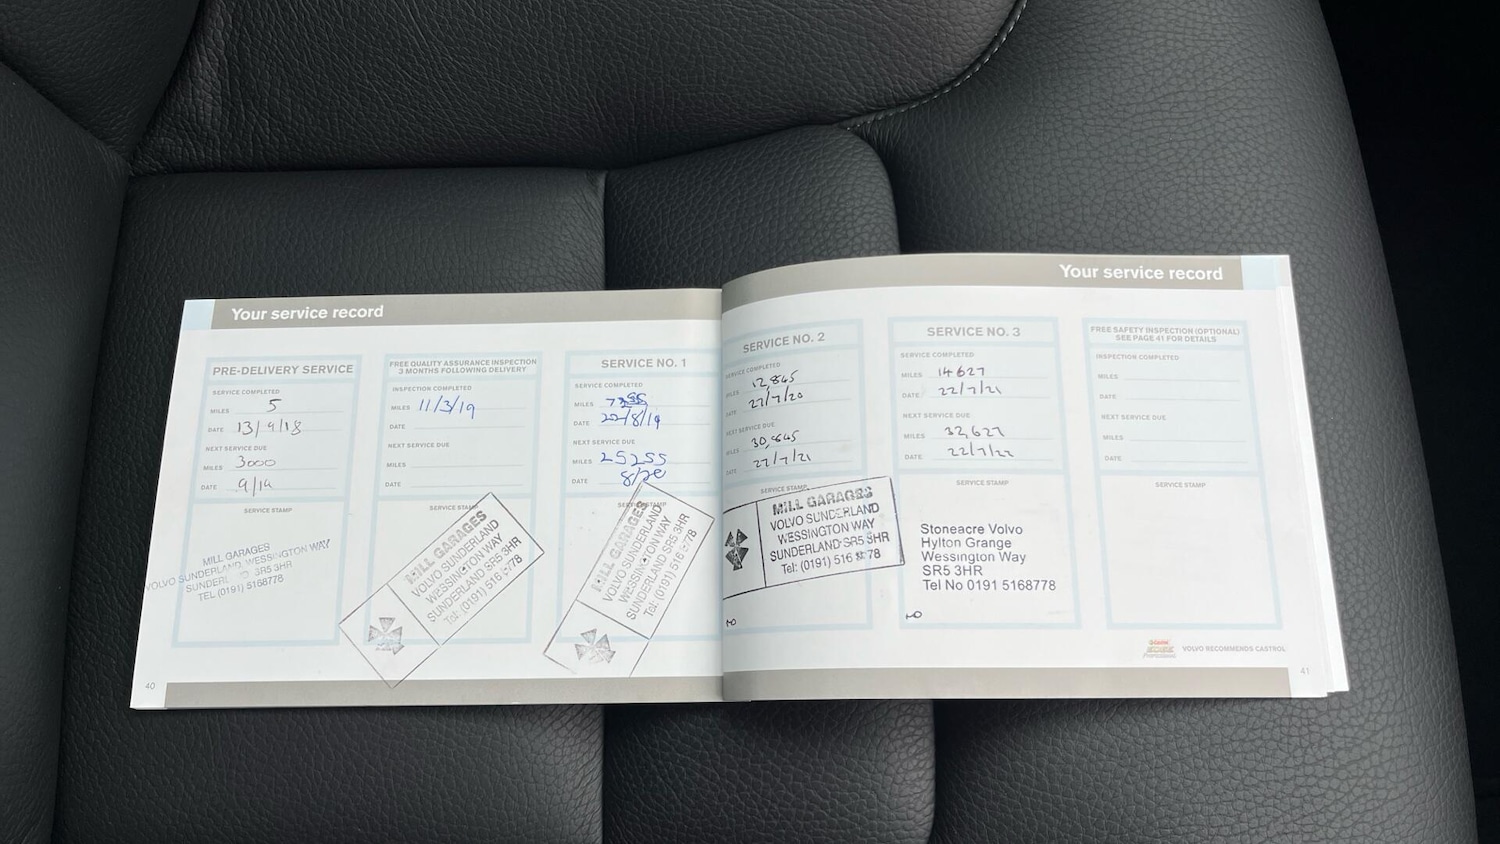 Your service record
PRE-DELIVERY SERVICE
SERVICE COMPLETED
MILES 5
DATE 13/9/18
NEXT SERVICE DUE
MILES 3000
DATE 9/19
SERVICE STAMP
MILL GARAGES
VOLVO SUNDERLAND, WESSINGTON WAY
SUNDERLAND SR5 3HR
TEL (0191) 5168778
FREE QUALITY ASSURANCE INSPECTION
3 MONTHS FOLLOWING DELIVERY
INSPECTION COMPLETED
MILES 11/3/19
DATE
NEXT SERVICE DUE
MILES
DATE
SERVICE STAMP
MILL GARAGES
VOLVO SUNDERLAND
WESSINGTON WAY
SUNDERLAND SR5 3HR
Tel: (0191) 516 8778
SERVICE NO. 1
SERVICE COMPLETED
MILES
DATE 22/8/19
NEXT SERVICE DUE
MILES 25255
DATE 8/20
SERVICE STAMP
MILL GARAGES
VOLVO SUNDERLAND
WESSINGTON WAY
SUNDERLAND SR5 3HR
Tel: (0191) 516 8778
40
Your service record
SERVICE NO. 2
SERVICE COMPLETED
MILES 12,865
DATE 27/7/20
NEXT SERVICE DUE
MILES 30,865
DATE 27/7/21
SERVICE STAMP
MILL GARAGES
VOLVO SUNDERLAND
WESSINGTON WAY
SUNDERLAND SR5 3HR
Tel: (0191) 516 8778
SERVICE NO. 3
SERVICE COMPLETED
MILES 14627
DATE 22/7/21
NEXT SERVICE DUE
MILES 32,627
DATE 22/7/22
SERVICE STAMP
Stoneacre Volvo
Hylton Grange
Wessington Way
SR5 3HR
Tel No 0191 5168778
FREE SAFETY INSPECTION (OPTIONAL)
SEE PAGE 41 FOR DETAILS
INSPECTION COMPLETED
MILES
DATE
NEXT SERVICE DUE
MILES
DATE
SERVICE STAMP
Castrol
EDGE
Professional
VOLVO RECOMMENDS CASTROL
41